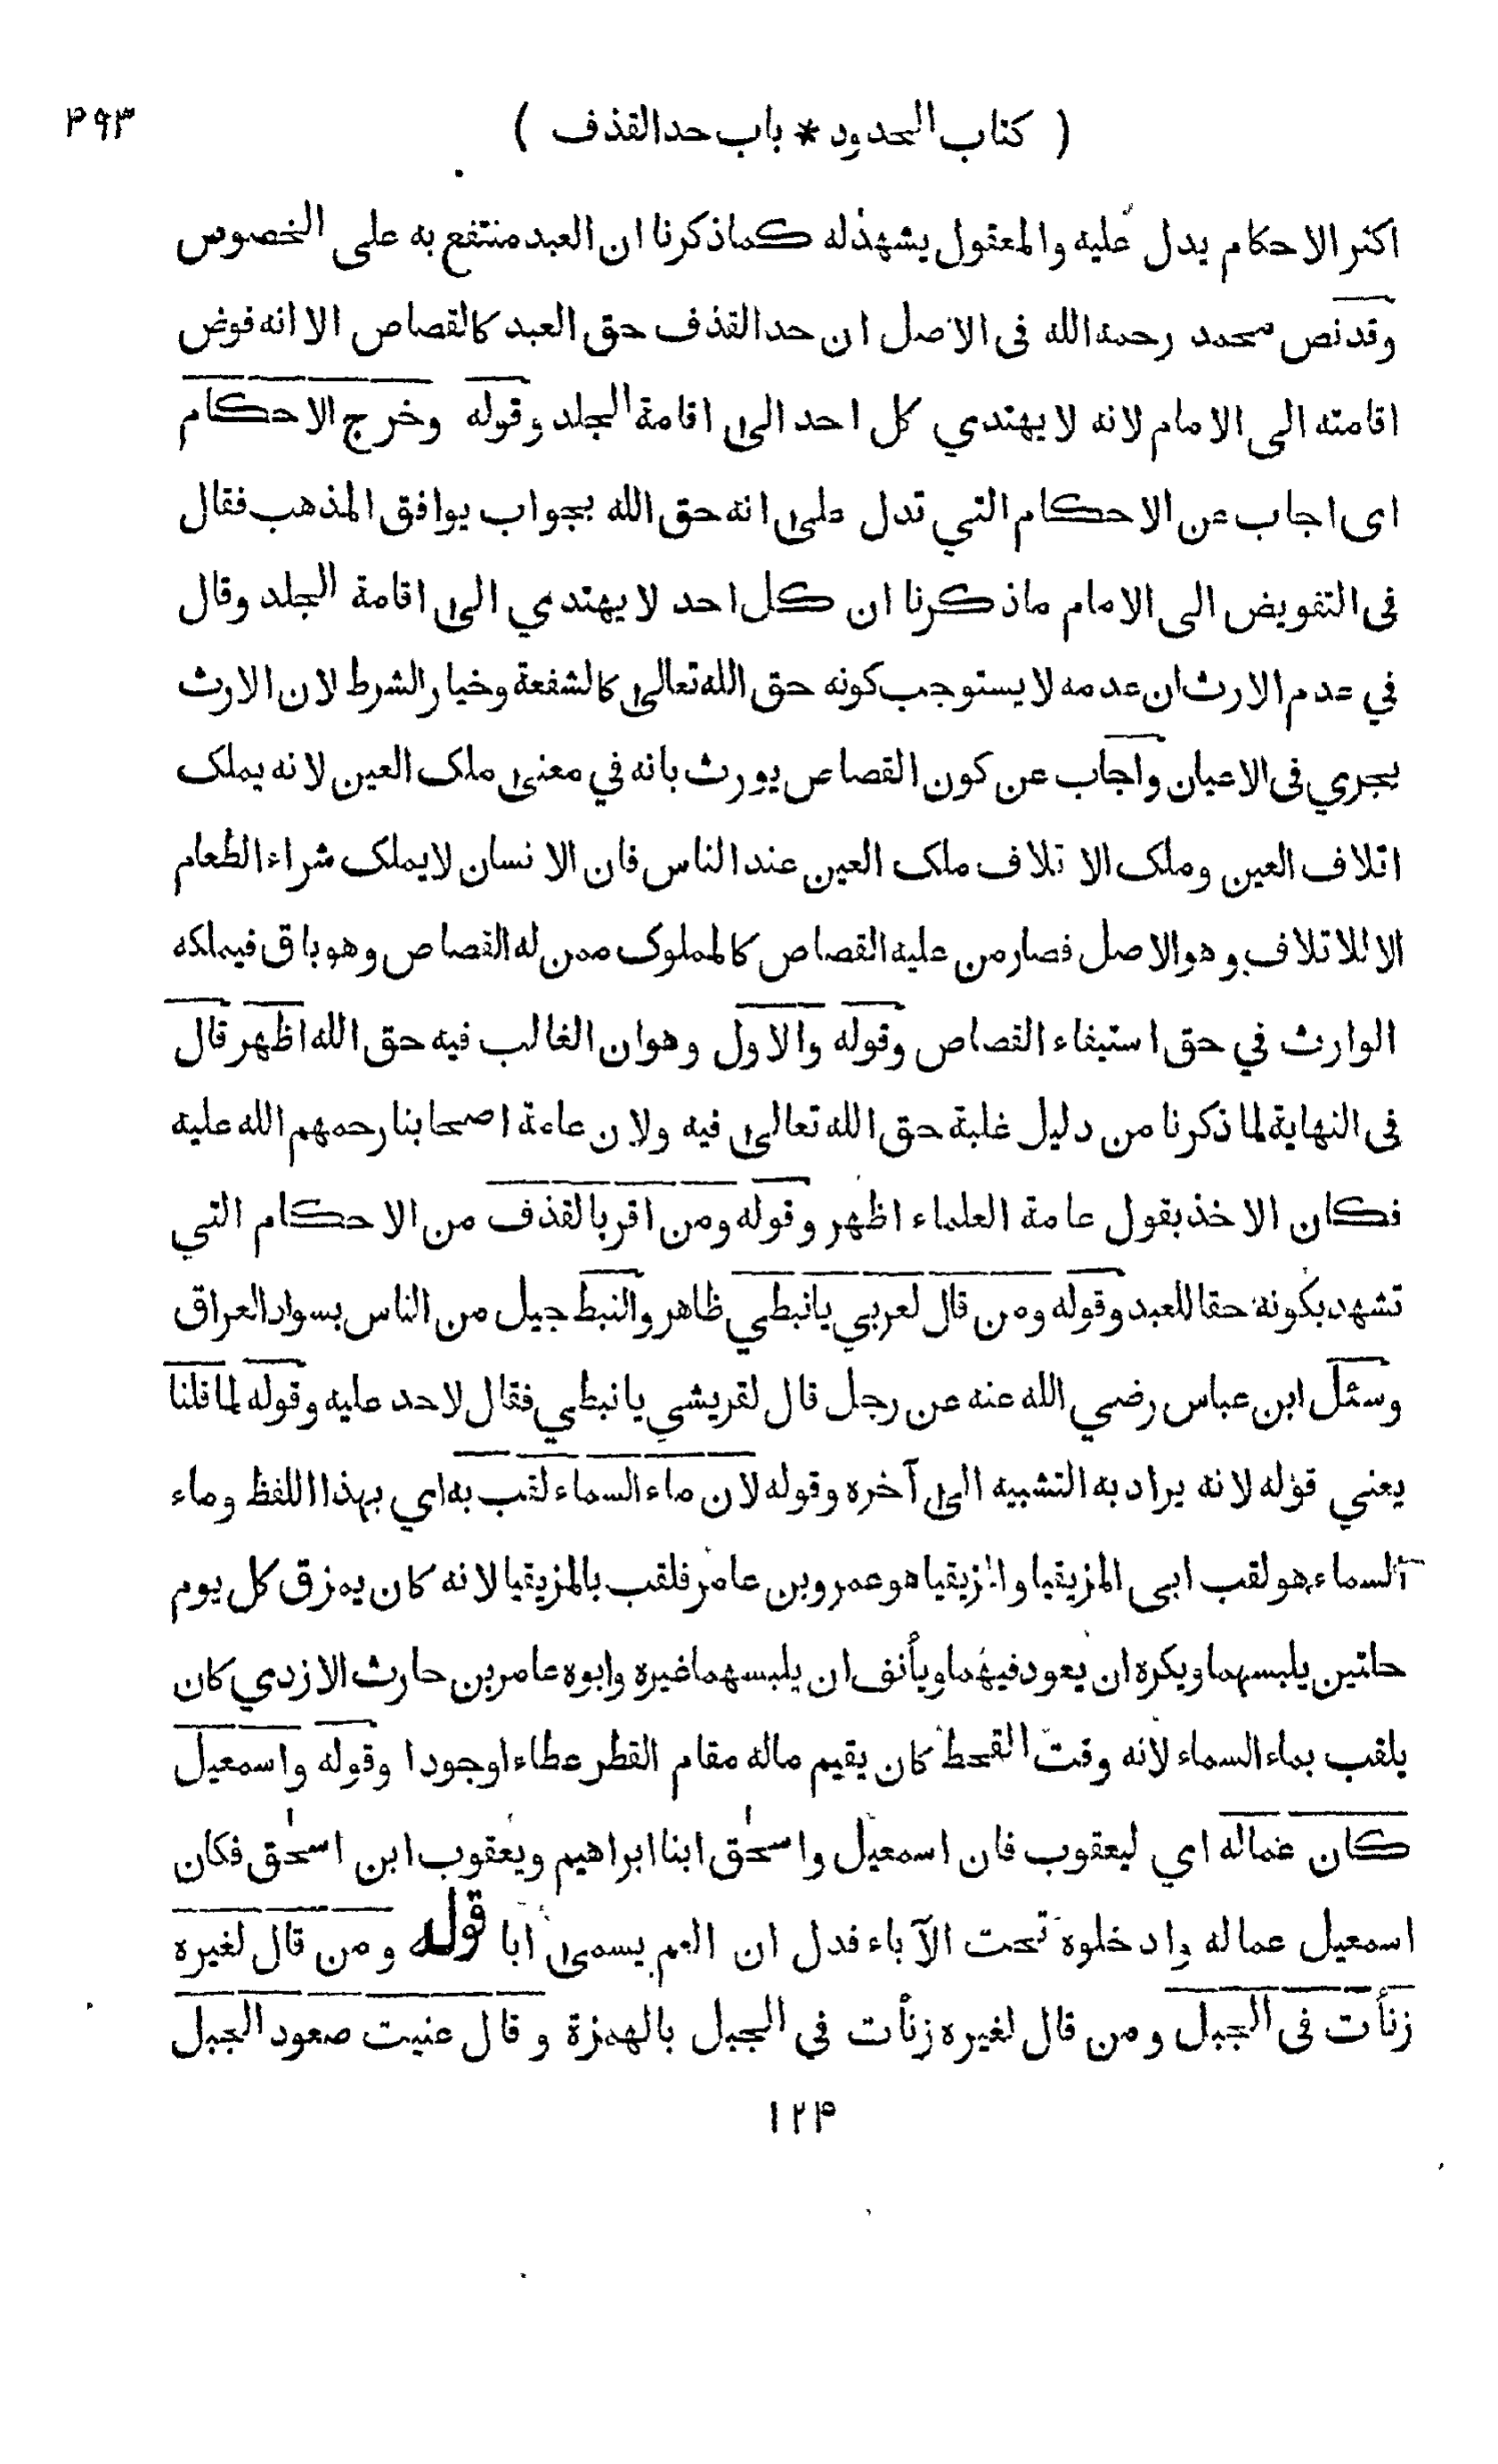 ( كتاب الحدود * باب حد القذف )
۴۹۳
اكثر الاحكام يدل عليه والمعقول يشهد له كما ذكرنا ان العبد منتفع به على الخصوص
وقد نص محمد رحمه الله فى الاصل ان حد القذف حق العبد كالقصاص الا انه فوض
اقامته الى الامام لانه لا يهتدي كل احد الى اقامة الجلد وقوله وخرج الاحكام
اى اجاب عن الاحكام التي تدل على انه حق الله بجواب يوافق المذهب فقال
فى التفويض الى الامام ما ذكرنا ان كل احد لا يهتدي الى اقامة الجلد وقال
في عدم الارث ان عدمه لا يستوجب كونه حق الله تعالى كالشفعة وخيار الشرط لان الارث
يجري فى الاعيان واجاب عن كون القصاص يورث بانه في معنى ملك العين لانه يملك
اتلاف العين وملك الاتلاف ملك العين عند الناس فان الانسان لا يملك شراء الطعام
الا للاتلاف وهو الاصل فصار من عليه القصاص كالمملوك ممن له القصاص وهو باق فيملكه
الوارث في حق استيفاء القصاص وقوله والاول وهو ان الغالب فيه حق الله اظهر قال
فى النهاية لما ذكرنا من دليل غلبة حق الله تعالى فيه ولان عامة اصحابنا رحمهم الله عليه
فكان الاخذ بقول عامة العلماء اظهر وقوله ومن اقر بالقذف من الاحكام التي
تشهد بكونه حقا للعبد وقوله ومن قال لعربي يا نبطي ظاهر والنبط جيل من الناس بسواد العراق
وسئل ابن عباس رضي الله عنه عن رجل قال لقريشي يا نبطي فقال لا حد عليه وقوله لما قلنا
يعني قوله لانه يراد به التشبيه الى آخره وقوله لان ماء السماء لقب به اي بهذا اللفظ وماء
السماء هو لقب ابى المزيقيا والمزيقيا هو عمرو بن عامر فلقب بالمزيقيا لانه كان يمزق كل يوم
حلتين يلبسهما ويكره ان يعود فيهما ويأنف ان يلبسهما غيره وابوه عامر بن حارث الازدي كان
يلقب بماء السماء لانه وقت القحط كان يقيم ماله مقام القطر عطاء اوجودا وقوله واسمعيل
كان عما له اي ليعقوب فان اسمعيل واسحٰق ابنا ابراهيم ويعقوب ابن اسحٰق فكان
اسمعيل عما له وادخلوه تحت الآباء فدل ان العم يسمى ابا قوله ومن قال لغيره
زنأت فى الجبل ومن قال لغيره زنأت في الجبل بالهمزة وقال عنيت صعود الجبل
۱۲۴